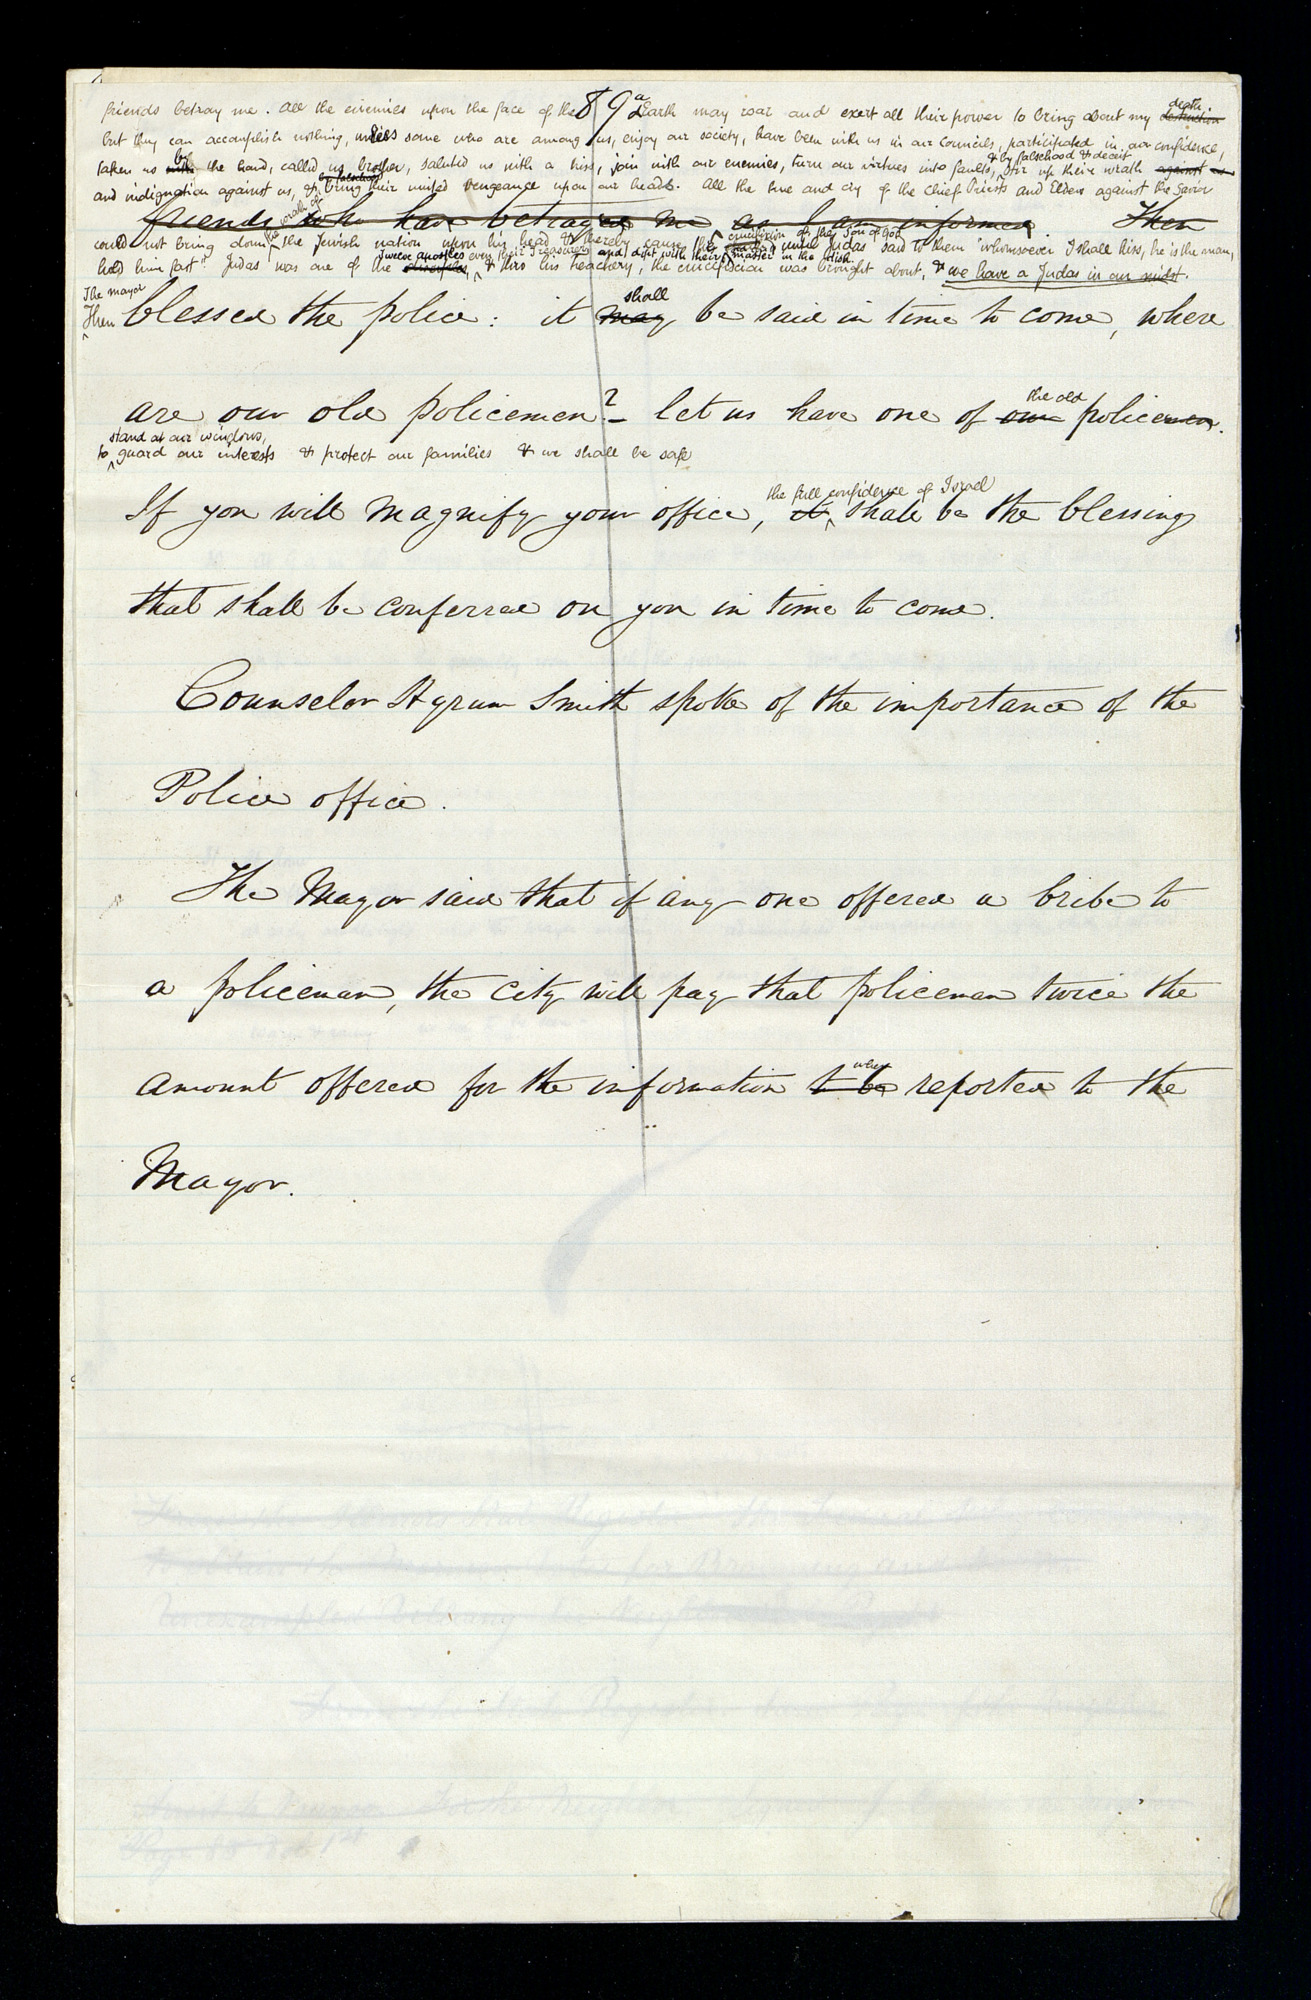 89a
friends betray me. All the enemies upon the face of the Earth may roar and exert all their power to bring about my destruction death
but they can accomplish nothing, unless some who are among us, enjoy our society, have been with us in our Councils, participated in our confidence,
taken us with by the hand, called us brother, saluted us with a kiss, join with our enemies, turn our virtues into faults, & by falsehood & deceit stir up their wrath against us
and indignation against us, & by falsehood bring their united vengeance upon our heads. All the hue and cry of the Chief Priests and Elders against the Savior
friends who have betrayed me as I am informed. Then
could not bring down the wrath of the Jewish nation upon his head & thereby cause the crucifixion of the Son of God until Judas said to them "whomsoever I shall kiss, he is the man,
hold him fast". Judas was one of the Twelve apostles even their Treasurer and dipt with their master in the dish & thro his treachery, the crucifixion was brought about, & we have a Judas in our midst.
The mayor
Then blessed the police: it may shall be said in time to come, where
are our old policemen? let us have one of our the old policemen.
to stand at our windows, guard our interests & protect our families & we shall be safe
If you will magnify your office, it the full confidence of Israel shall be the blessing
that shall be conferred on you in time to come.
Counselor Hyrum Smith spoke of the importance of the
Police office.
The Mayor said that if any one offered a bribe to
a policeman, the city will pay that policeman twice the
amount offered for the information to be when reported to the
Mayor.